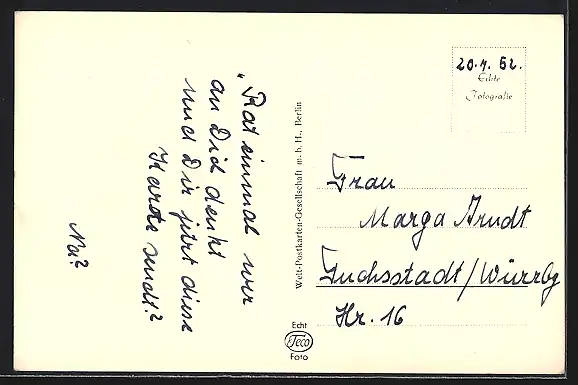 „Rat einmal wer
an Dich denkt
und Dir jetzt diese
Karte sendt?
Na?
Welt-Postkarten-Gesellschaft m. b. H., Berlin
Echt
Teco
Foto
20.7.62.
Echte
Fotografie
Frau
Marga Arndt
Fuchsstadt/Würzbg
Hr. 16